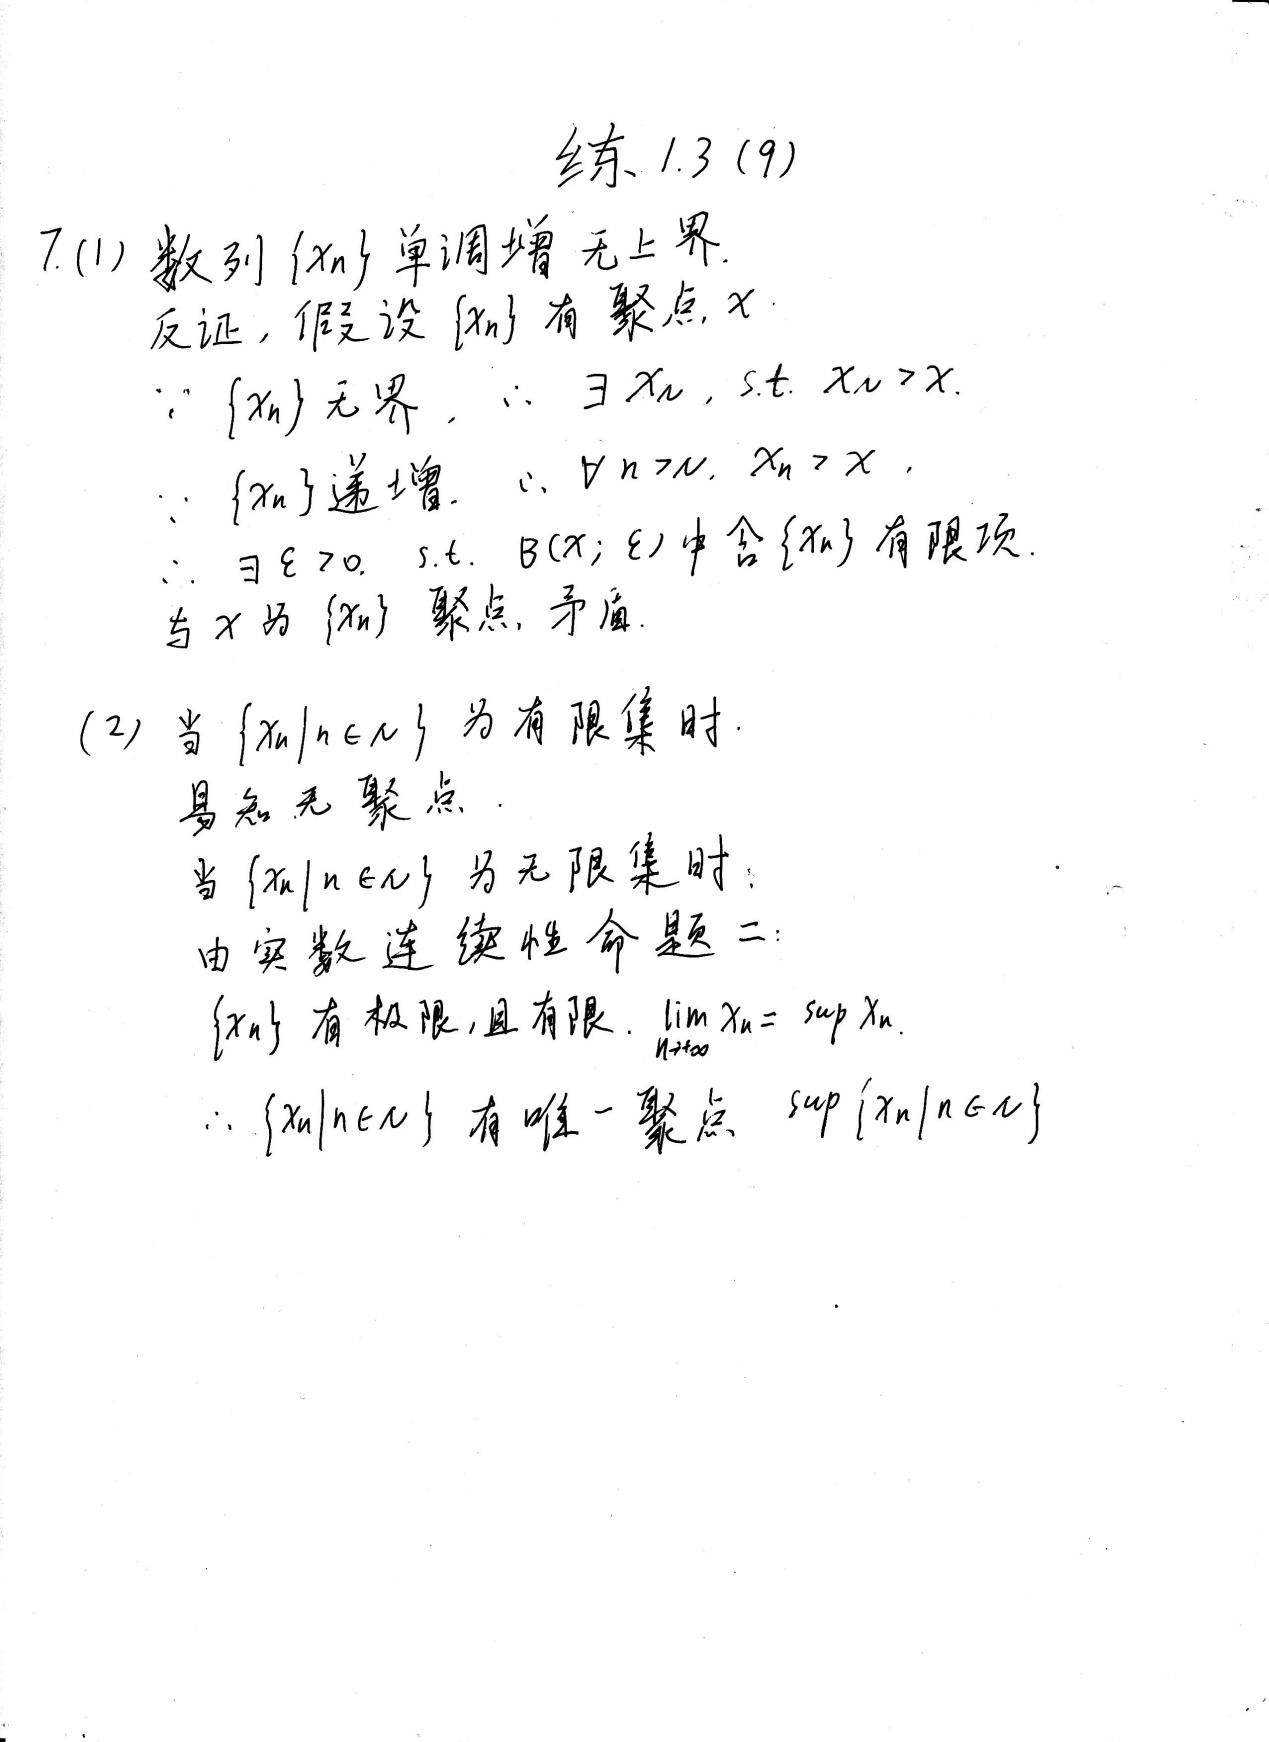 练 1.3 (9)
7.(1) 数列 {xn} 单调增 无上界.
反证, 假设 {xn} 有 聚点 x.
∵ {xn} 无界, ∴ ∃ xN, s.t. xN > x.
∵ {xn} 递增. ∴ ∀ n>N. xn > x,
∴ ∃ ε>0. s.t. B(x; ε) 中含 {xn} 有限项.
与 x 为 {xn} 聚点, 矛盾.
(2) 当 {xn|n∈N} 为有限集时.
易知无聚点.
当 {xn|n∈N} 为无限集时:
由实数连续性命题二:
{xn} 有极限, 且有限. lim n→+∞ xn = sup xn.
∴ {xn|n∈N} 有唯一聚点 sup {xn|n∈N}